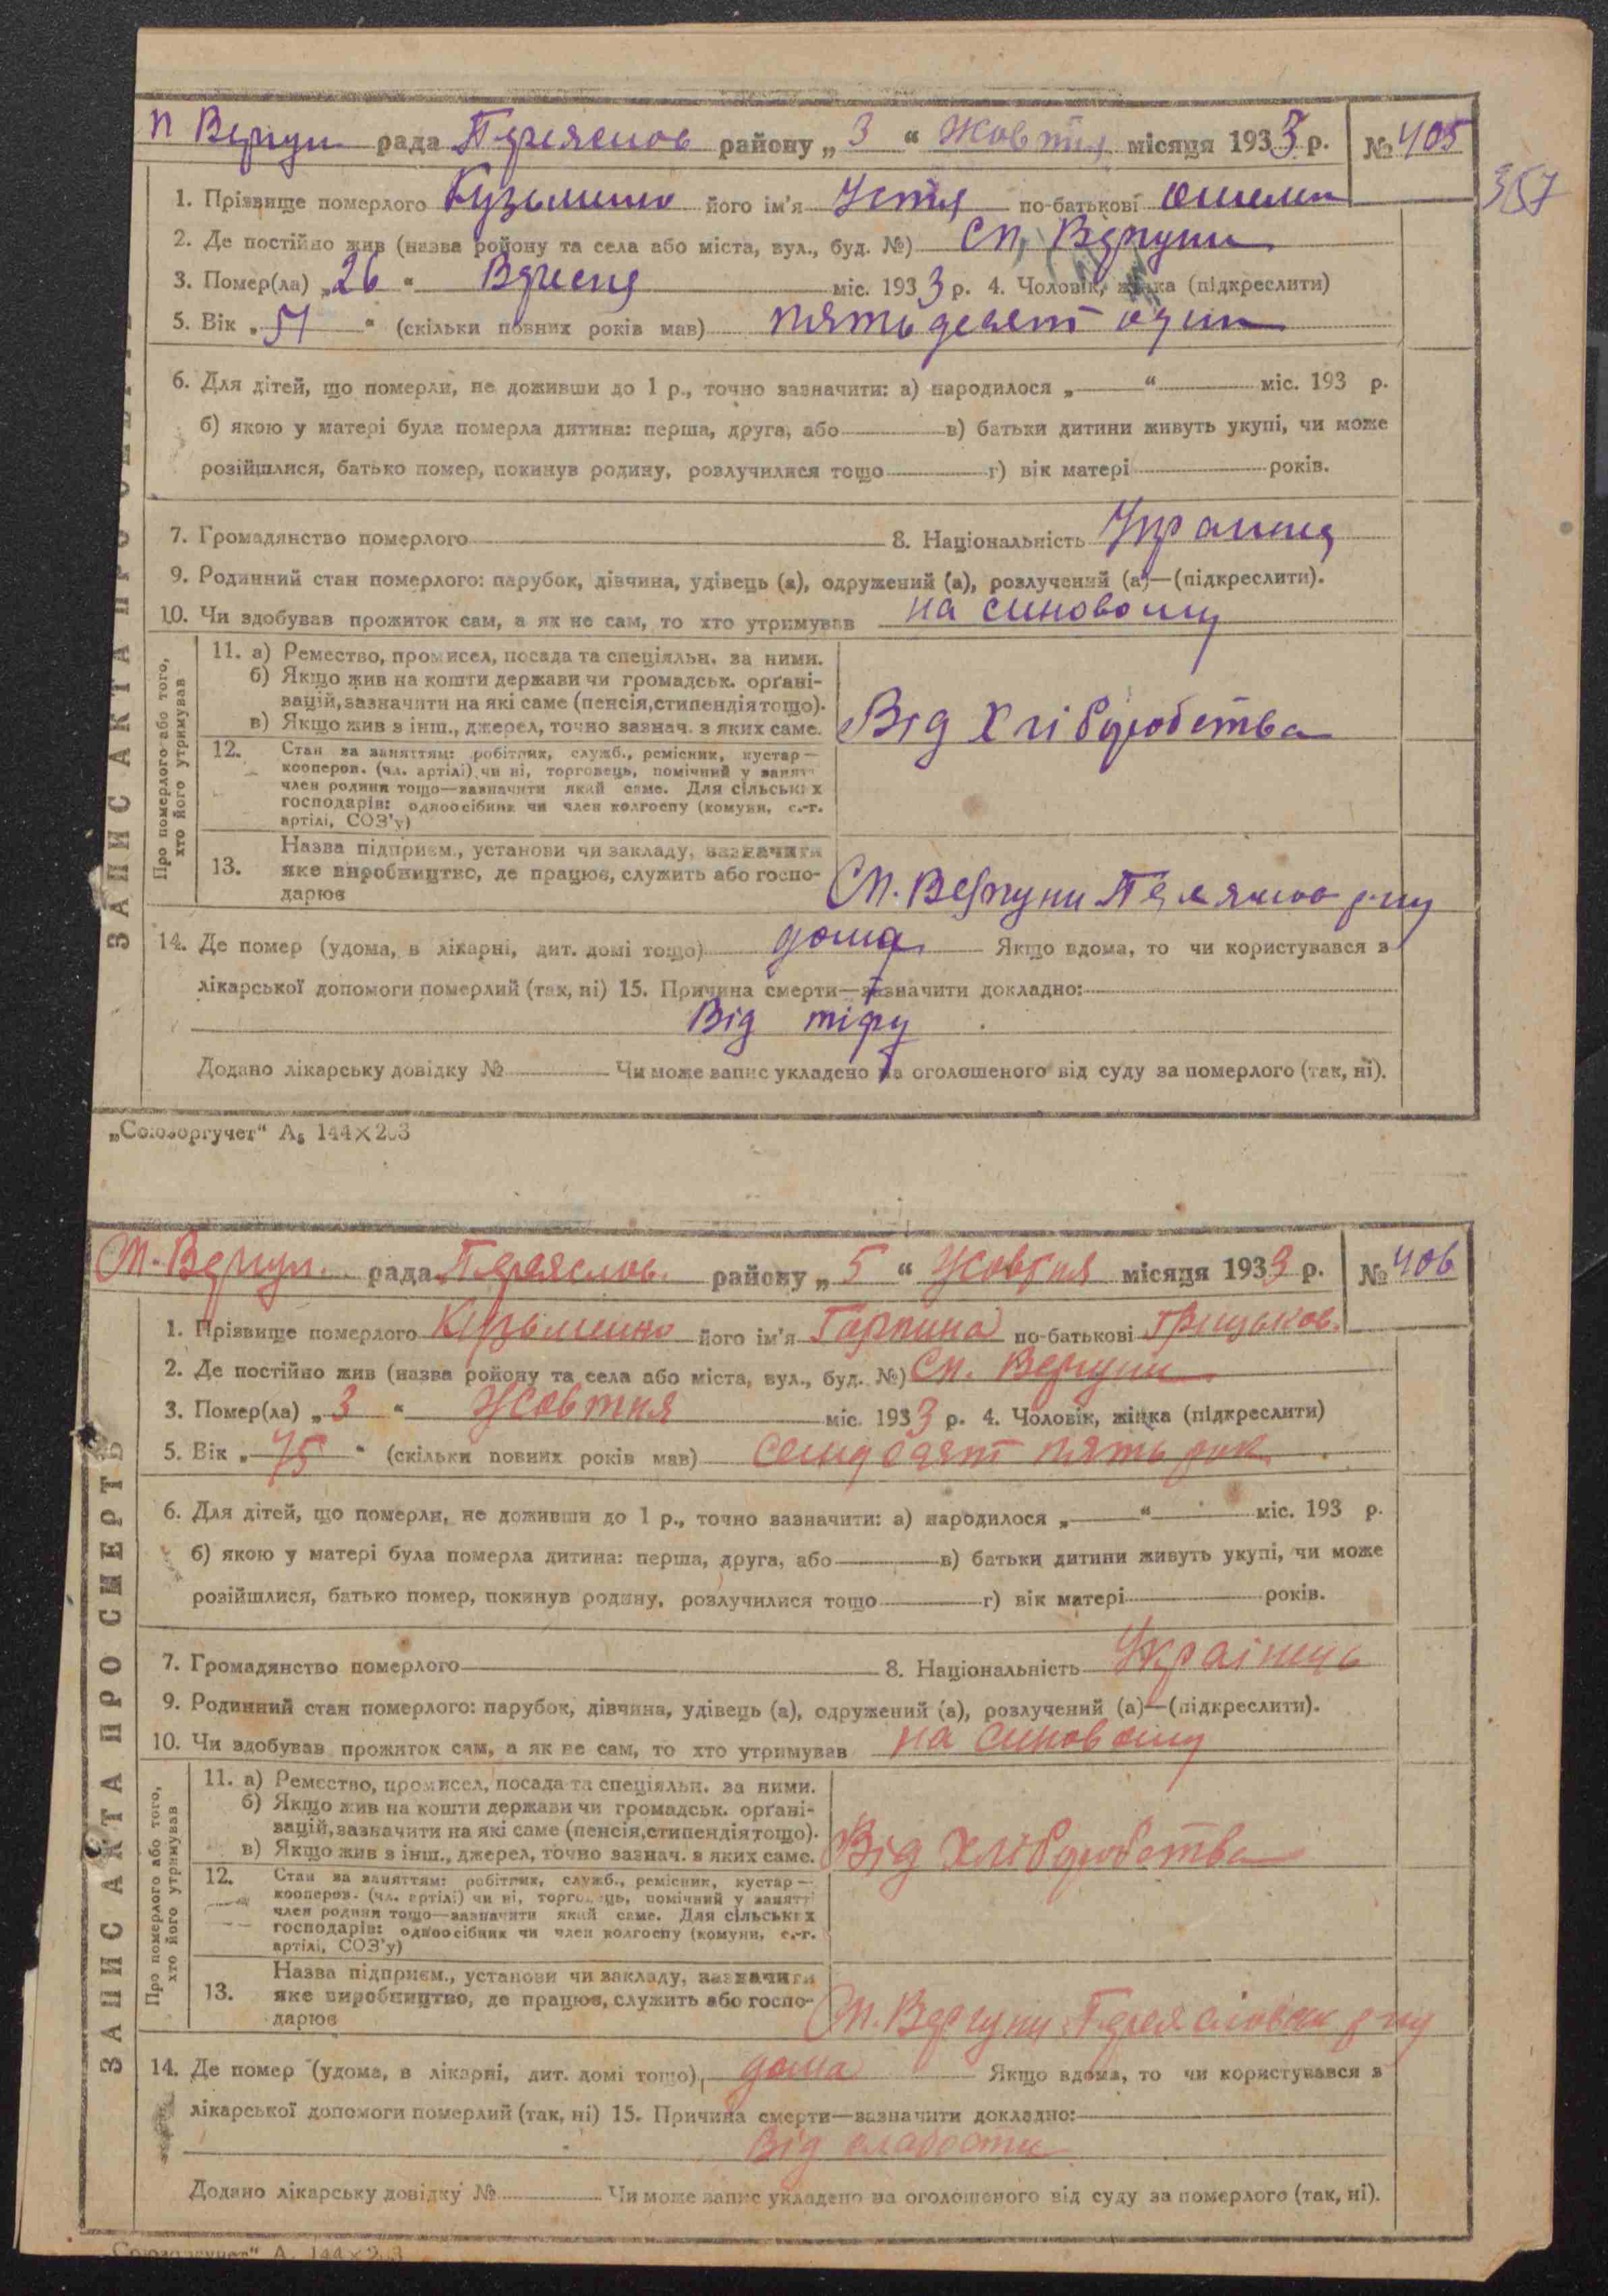 п Вергун рада Переяслов району „ 3 “ Жовтня місяця 1933 р. № 405
357
1. Прізвище померлого Кузьменко його ім'я Устя по-батькові
2. Де постійно жив (назва району та села або міста, вул., буд. №) Сп. Вергуни
3. Помер(ла) „ 26 “ Вресня міс. 1933 р. 4. Чоловік, жінка (підкреслити)
5. Вік „ 51 “ (скільки повних років мав) пятьдесят один
6. Для дітей, що померли, не доживши до 1 р., точно зазначити: а) народилося „ “ міс. 193 р.
б) якою у матері була померла дитина: перша, друга, або в) батьки дитини живуть укупі, чи може
розійшлися, батько помер, покинув родину, розлучилися тощо г) вік матері років.
7. Громадянство померлого 8. Національність
9. Родинний стан померлого: парубок, дівчина, удівець (а), одружений (а), розлучений (а)—(підкреслити).
10. Чи здобував прожиток сам, а як не сам, то хто утримував на синовому
ЗАПИС АКТА ПРО
Про померлого або того, хто його утримував
11. а) Ремество, промисел, посада та спеціяльн. за ними.
б) Якщо жив на кошти держави чи громадськ. орґані-
зацій, зазначити на які саме (пенсія, стипендія тощо).
в) Якщо жив з інш., джерел, точно зазнач. з яких саме.
Від Хліборобства
12. Стан за заняттям: робітник, служб., ремісник, кустар—
кооперов. (чл. артілі) чи ні, торговець, помічний у занятті
член родини тощо—зазначити який саме. Для сільських
господарів: одноосібник чи член колгоспу (комуни, с.-г.
артілі, СОЗ'у)
13. Назва підприєм., установи чи закладу, зазначити
яке виробництво, де працює, служить або госпо-
дарює
Сп. Вергуни р-ну
14. Де помер (удома, в лікарні, дит. домі тощо) дома Якщо вдома, то чи користувався з
лікарської допомоги померлий (так, ні) 15. Причина смерти—зазначити докладно:
Від тіфу
Додано лікарську довідку № Чи може запис укладено на оголошеного від суду за померлого (так, ні).
„Союзоргучет“ А5 144×203
Сп. Вергун. рада Переяслов. району „ 5 “ Жовтня місяця 1933 р. № 406
1. Прізвище померлого Кузьменко його ім'я Горпина по-батькові Грицьков.
2. Де постійно жив (назва району та села або міста, вул., буд. №) Сп. Вергуни
3. Помер(ла) „ 3 “ Жовтня міс. 1933 р. 4. Чоловік, жінка (підкреслити)
5. Вік „ 75 “ (скільки повних років мав) семдесят пять рок
6. Для дітей, що померли, не доживши до 1 р., точно зазначити: а) народилося „ “ міс. 193 р.
б) якою у матері була померла дитина: перша, друга, або в) батьки дитини живуть укупі, чи може
розійшлися, батько помер, покинув родину, розлучилися тощо г) вік матері років.
7. Громадянство померлого 8. Національність Українець
9. Родинний стан померлого: парубок, дівчина, удівець (а), одружений (а), розлучений (а)—(підкреслити).
10. Чи здобував прожиток сам, а як не сам, то хто утримував на синовому
ЗАПИС АКТА ПРО СМЕРТЬ
Про померлого або того, хто його утримував
11. а) Ремество, промисел, посада та спеціяльн. за ними.
б) Якщо жив на кошти держави чи громадськ. орґані-
зацій, зазначити на які саме (пенсія, стипендія тощо).
в) Якщо жив з інш., джерел, точно зазнач. з яких саме.
Від Хліборобства
12. Стан за заняттям: робітник, служб., ремісник, кустар—
кооперов. (чл. артілі) чи ні, торговець, помічний у занятті
член родини тощо—зазначити який саме. Для сільських
господарів: одноосібник чи член колгоспу (комуни, с.-г.
артілі, СОЗ'у)
13. Назва підприєм., установи чи закладу, зазначити
яке виробництво, де працює, служить або госпо-
дарює
Сп. Вергуни р-ну
14. Де помер (удома, в лікарні, дит. домі тощо) дома Якщо вдома, то чи користувався з
лікарської допомоги померлий (так, ні) 15. Причина смерти—зазначити докладно:
Від слабости
Додано лікарську довідку № Чи може запис укладено на оголошеного від суду за померлого (так, ні).
„Союзоргучет“ А 144×203